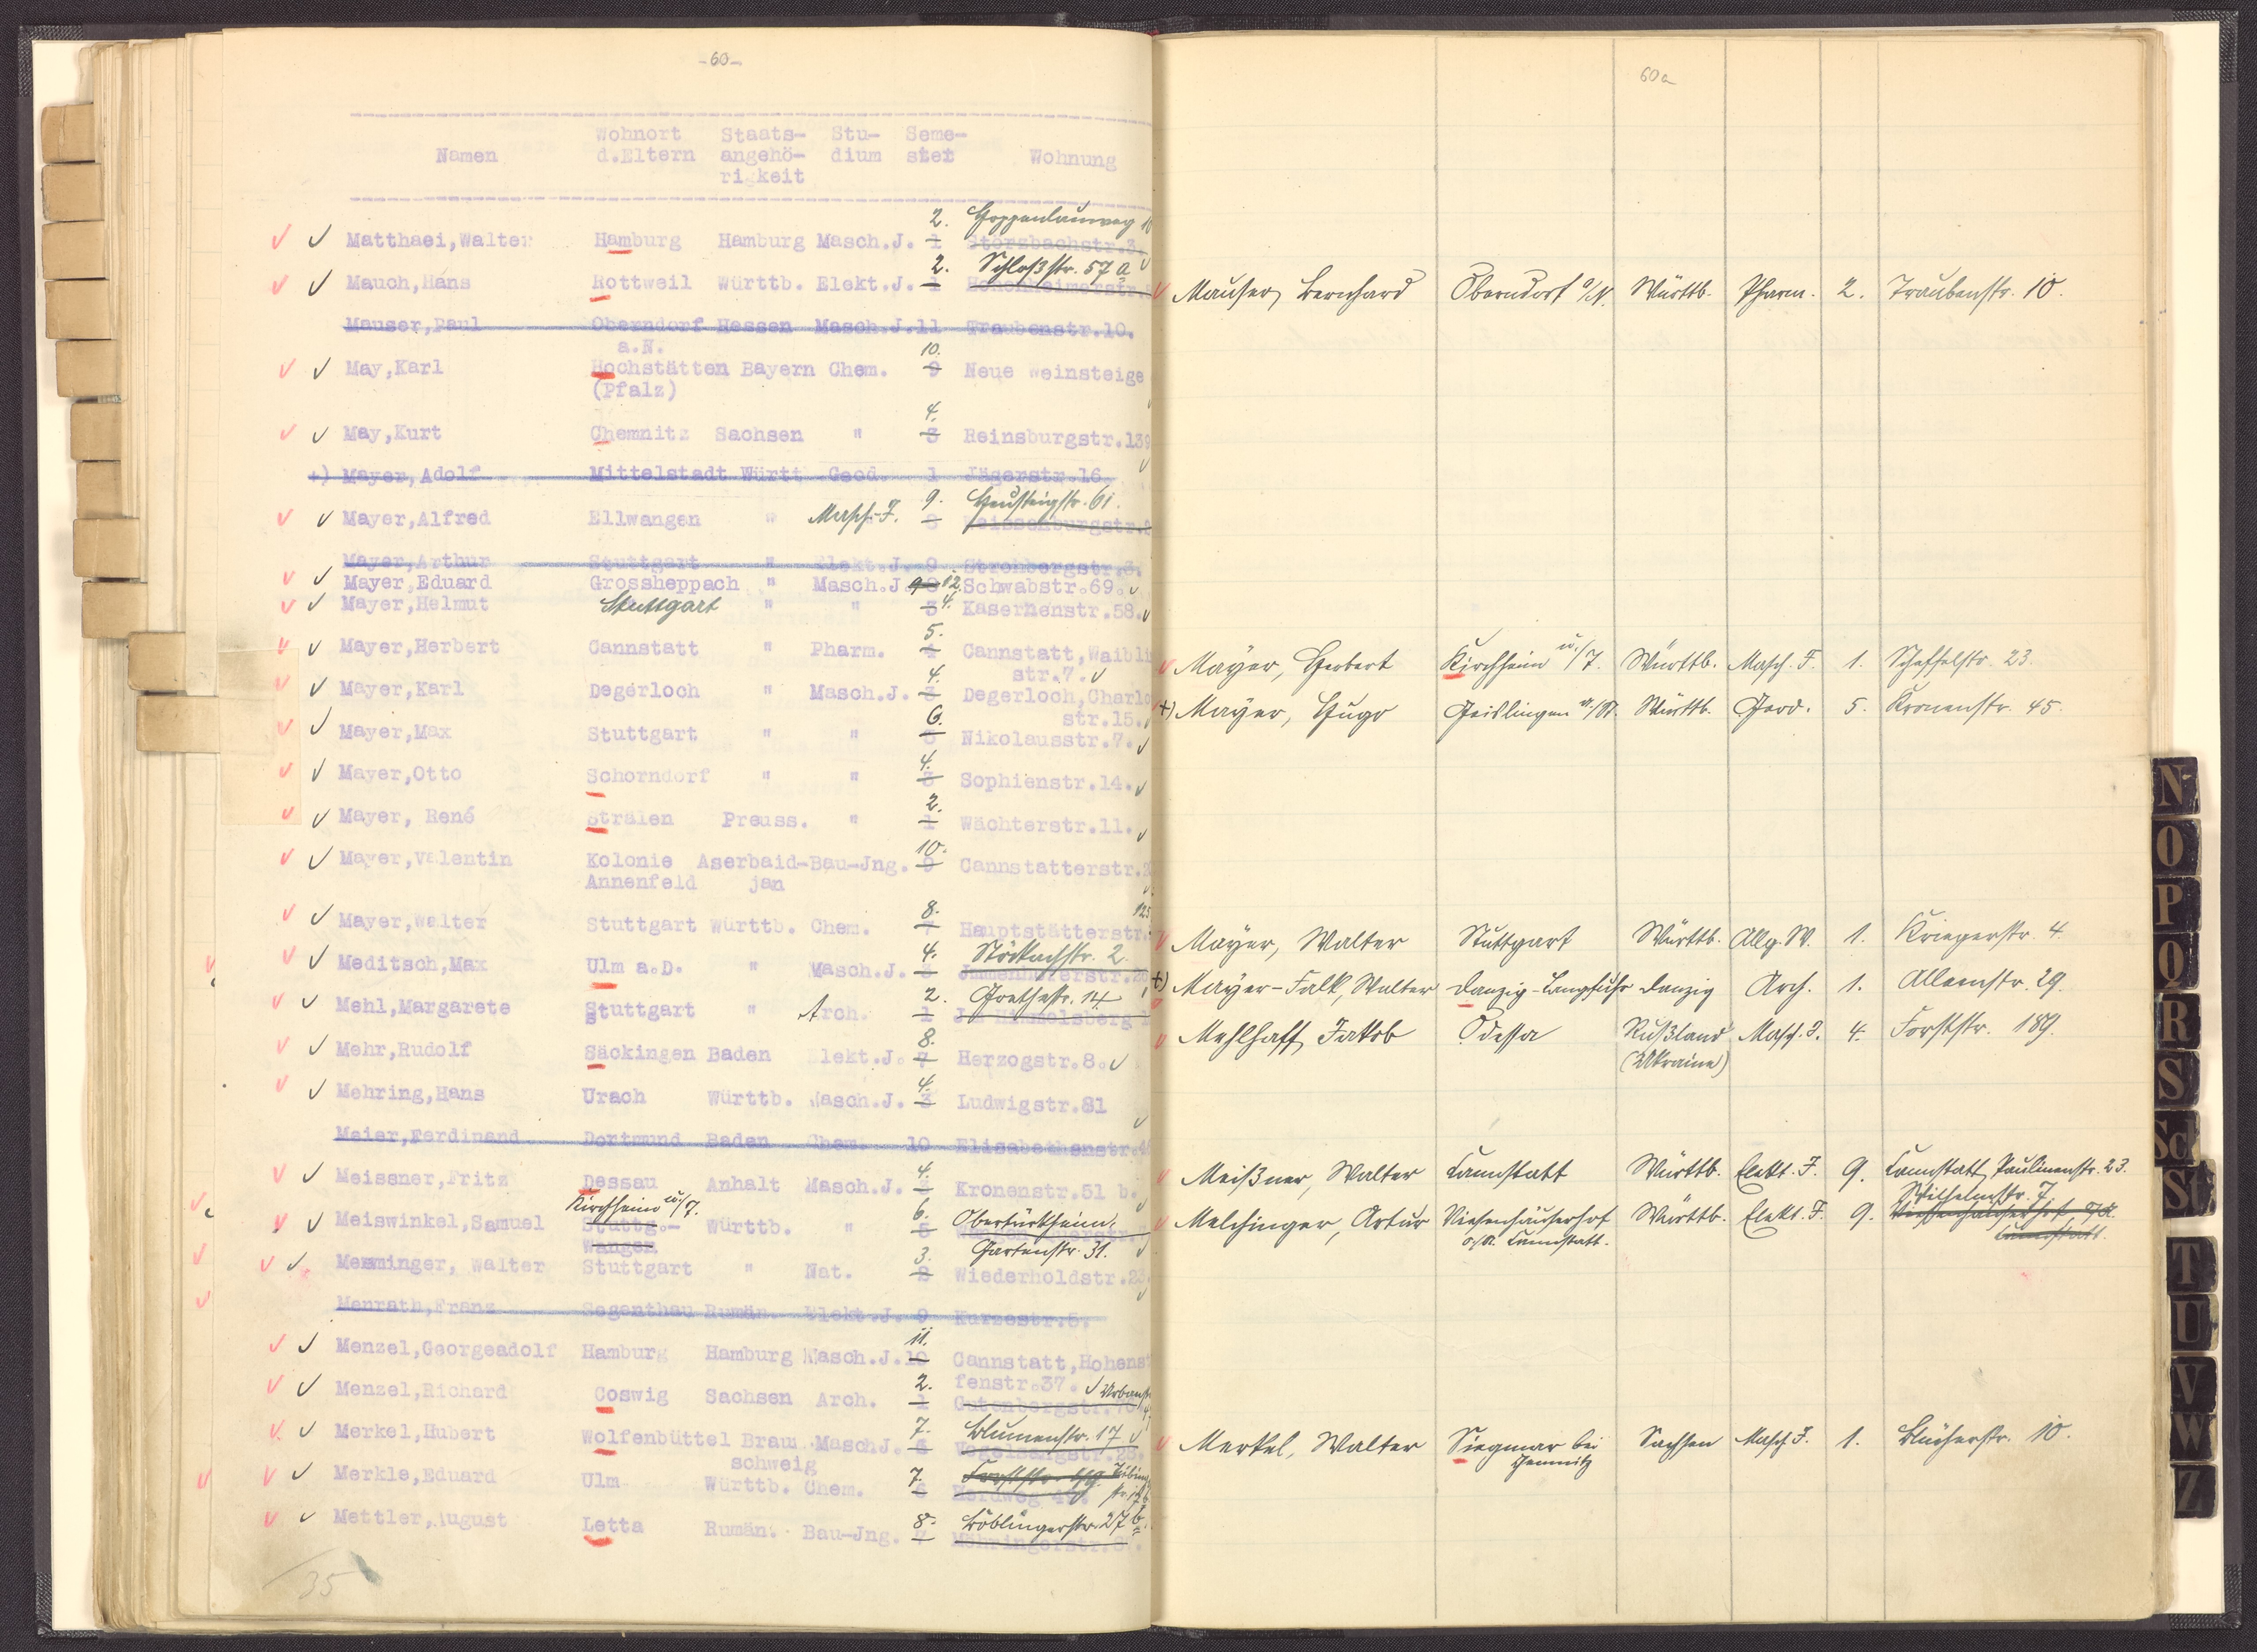 -60-
Namen Wohnort d.Eltern Staats-angehö-rigkeit Stu-dium Seme-ster Wohnung
2. Hoppenlauweg 10
Matthaei,Walter Hamburg Hamburg Masch.J. 1 Störzbachstr.3.
2. Schloßstr. 57 a
Mauch,Hans Rottweil Württb. Elekt.J. 1
Mauser,Paul Oberndorf Hessen Masch.J. 11 Traubenstr.10.
a.N.
10.
May,Karl Hochstätten Bayern Chem. 9 Neue Weinsteige
(Pfalz)
4.
May,Kurt Chemnitz Sachsen " 3 Reinsburgstr.139
+) Mayer,Adolf Mittelstadt Württ Geod. 1 Jägerstr.16.
9. Heusteigstr. 61.
Mayer,Alfred Ellwangen " Masch.-I. 8
Mayer,Arthur Stuttgart " Elekt.J. 9
Mayer,Eduard Grossheppach " Masch.J. 9 12. Schwabstr.69.
Mayer,Helmut Stuttgart " " 3 4. Kasernenstr.58.
5.
Mayer,Herbert Cannstatt " Pharm. 4 Cannstatt,Waibli
str.7.
4.
Mayer,Karl Degerloch " Masch.J. 3 Degerloch,Charlo
str.15.
6.
Mayer,Max Stuttgart " " 5 Nikolausstr.7.
4.
Mayer,Otto Schorndorf " " 3 Sophienstr.14.
2.
Mayer, René Strälen Preuss. " 1 Wächterstr.11.
10.
Mayer,Valentin Kolonie Aserbaid-Bau-Jng. 9 Cannstatterstr.
Annenfeld jan
8. 125
Mayer,Walter Stuttgart Württb. Chem. 7 Hauptstätterstr.
4. Stöckachstr. 2.
Meditsch,Max Ulm a.D. " Masch.J. 3
2. Goethestr. 14
Mehl,Margarete Stuttgart " Arch. 1 Im Himmelsberg
8.
Mehr,Rudolf Säckingen Baden Elekt.J. 7 Herzogstr.8.
4.
Mehring,Hans Urach Württb. Masch.J. 3 Ludwigstr.81
Meier,Ferdinand Dortmund Baden Chem. 10 Elisabethenstr.
4.
Meissner,Fritz Dessau Anhalt Masch.J. 3 Kronenstr.51 b.
Kirchheim u./T. 6. Obertürkheim,
Meiswinkel,Samuel Stuttg.- Württb. " 5
Wangen Gartenstr. 31.
3.
Memminger, Walter Stuttgart " Nat. 2 Wiederholdstr.
Menrath,Franz Segenthau Rumän. Elekt.J. 9 Kurzestr.
11.
Menzel,Georgeadolf Hamburg Hamburg Masch.J. 10 Cannstatt,Hohenst
fenstr.37.
2. Urbanstr
Menzel,Richard Coswig Sachsen Arch. 1 Gutenbergstr.
7. Blumenstr. 17
Merkel,Hubert Wolfenbüttel Braun Masch J. 6 Vogelsangstr.
schweig
7.
Merkle,Eduard Ulm Württb. Chem. 6 Herdweg
8. Böblingerstr. 27 b.
Mettler,August Letta Rumän. Bau-Jng. 7 Möhringerstr.
35
60a
Mauser, Bernhard Oberndorf a/N. Württb. Pharm. 2. Traubenstr. 10.
Mayer, Herbert Kirchheim u./T. Württb. Masch. I. 1. Scheffelstr. 23.
+) Mayer, Hugo Geislingen a./St. Württb. Geod. 5. Kronenstr. 45.
Mayer, Walter Stuttgart Württb. Allg. W. 1. Kriegerstr. 4
+) Mayer-Falk, Walter Danzig-Langfuhr Danzig Arch. 1. Alleenstr. 29.
Mehlhaff, Jakob Odessa Rußland Masch. I. 4. Forststr. 189.
(Ukraine)
Meißner, Walter Cannstatt Württb. Elekt. I. 9. Cannstatt, Paulinenstr. 23.
Wilhelmstr. 7.
Melchinger, Artur Württb. Elekt. I. 9.
O/A. Cannstatt. Cannstatt.
Merkel, Walter Siegmar bei Sachsen Masch. I. 1. Blücherstr. 10.
Chemnitz
N
O
P
Q
R
S
Sch
St
T
U
V
W
Z